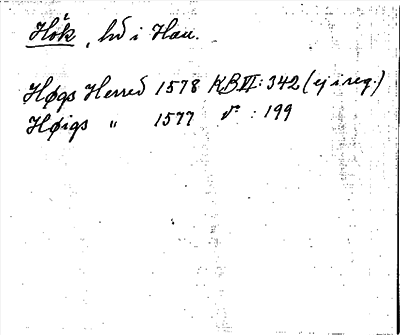 Hök, hd i Hall.
Høgs Herred 1578 KB VI: 342 (ej i reg.)
Høigs " 1577 " : 199